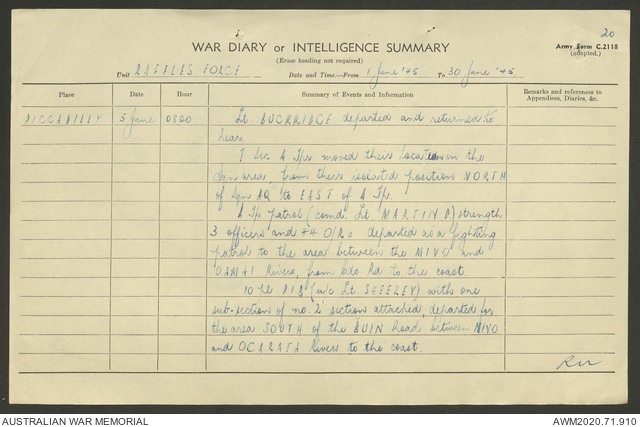 20
WAR DIARY or INTELLIGENCE SUMMARY
Army Form C.2118
(adapted.)
(Erase heading not required)
Unit RAFFLES FORCE Date and Time—From 1 June '45 To 30 June '45
Place Date Hour Summary of Events and Information Remarks and references to Appendices, Diaries, &c.
PICCADILLY 5 June 0800 Lt BUCKRIDGE departed and returned to
Sec A Tps moved their location in the
area, from their isolated positions NORTH
of AQ to EAST of A Tp.
A Tp patrol (comd. Lt MARTIN D) strength
3 officers and 44 O/Rs departed as a fighting
patrol to the area between the MIVO and
OAMAI Rivers, from Rd to the coast.
10 Pl PIB (u/c Lt SHEEKEY) with one
sub-section of no. 2 section attached, departed for
the area SOUTH of the BUIN Road between MIVO
and OGARATA Rivers to the coast
AUSTRALIAN WAR MEMORIAL AWM2020.71.910